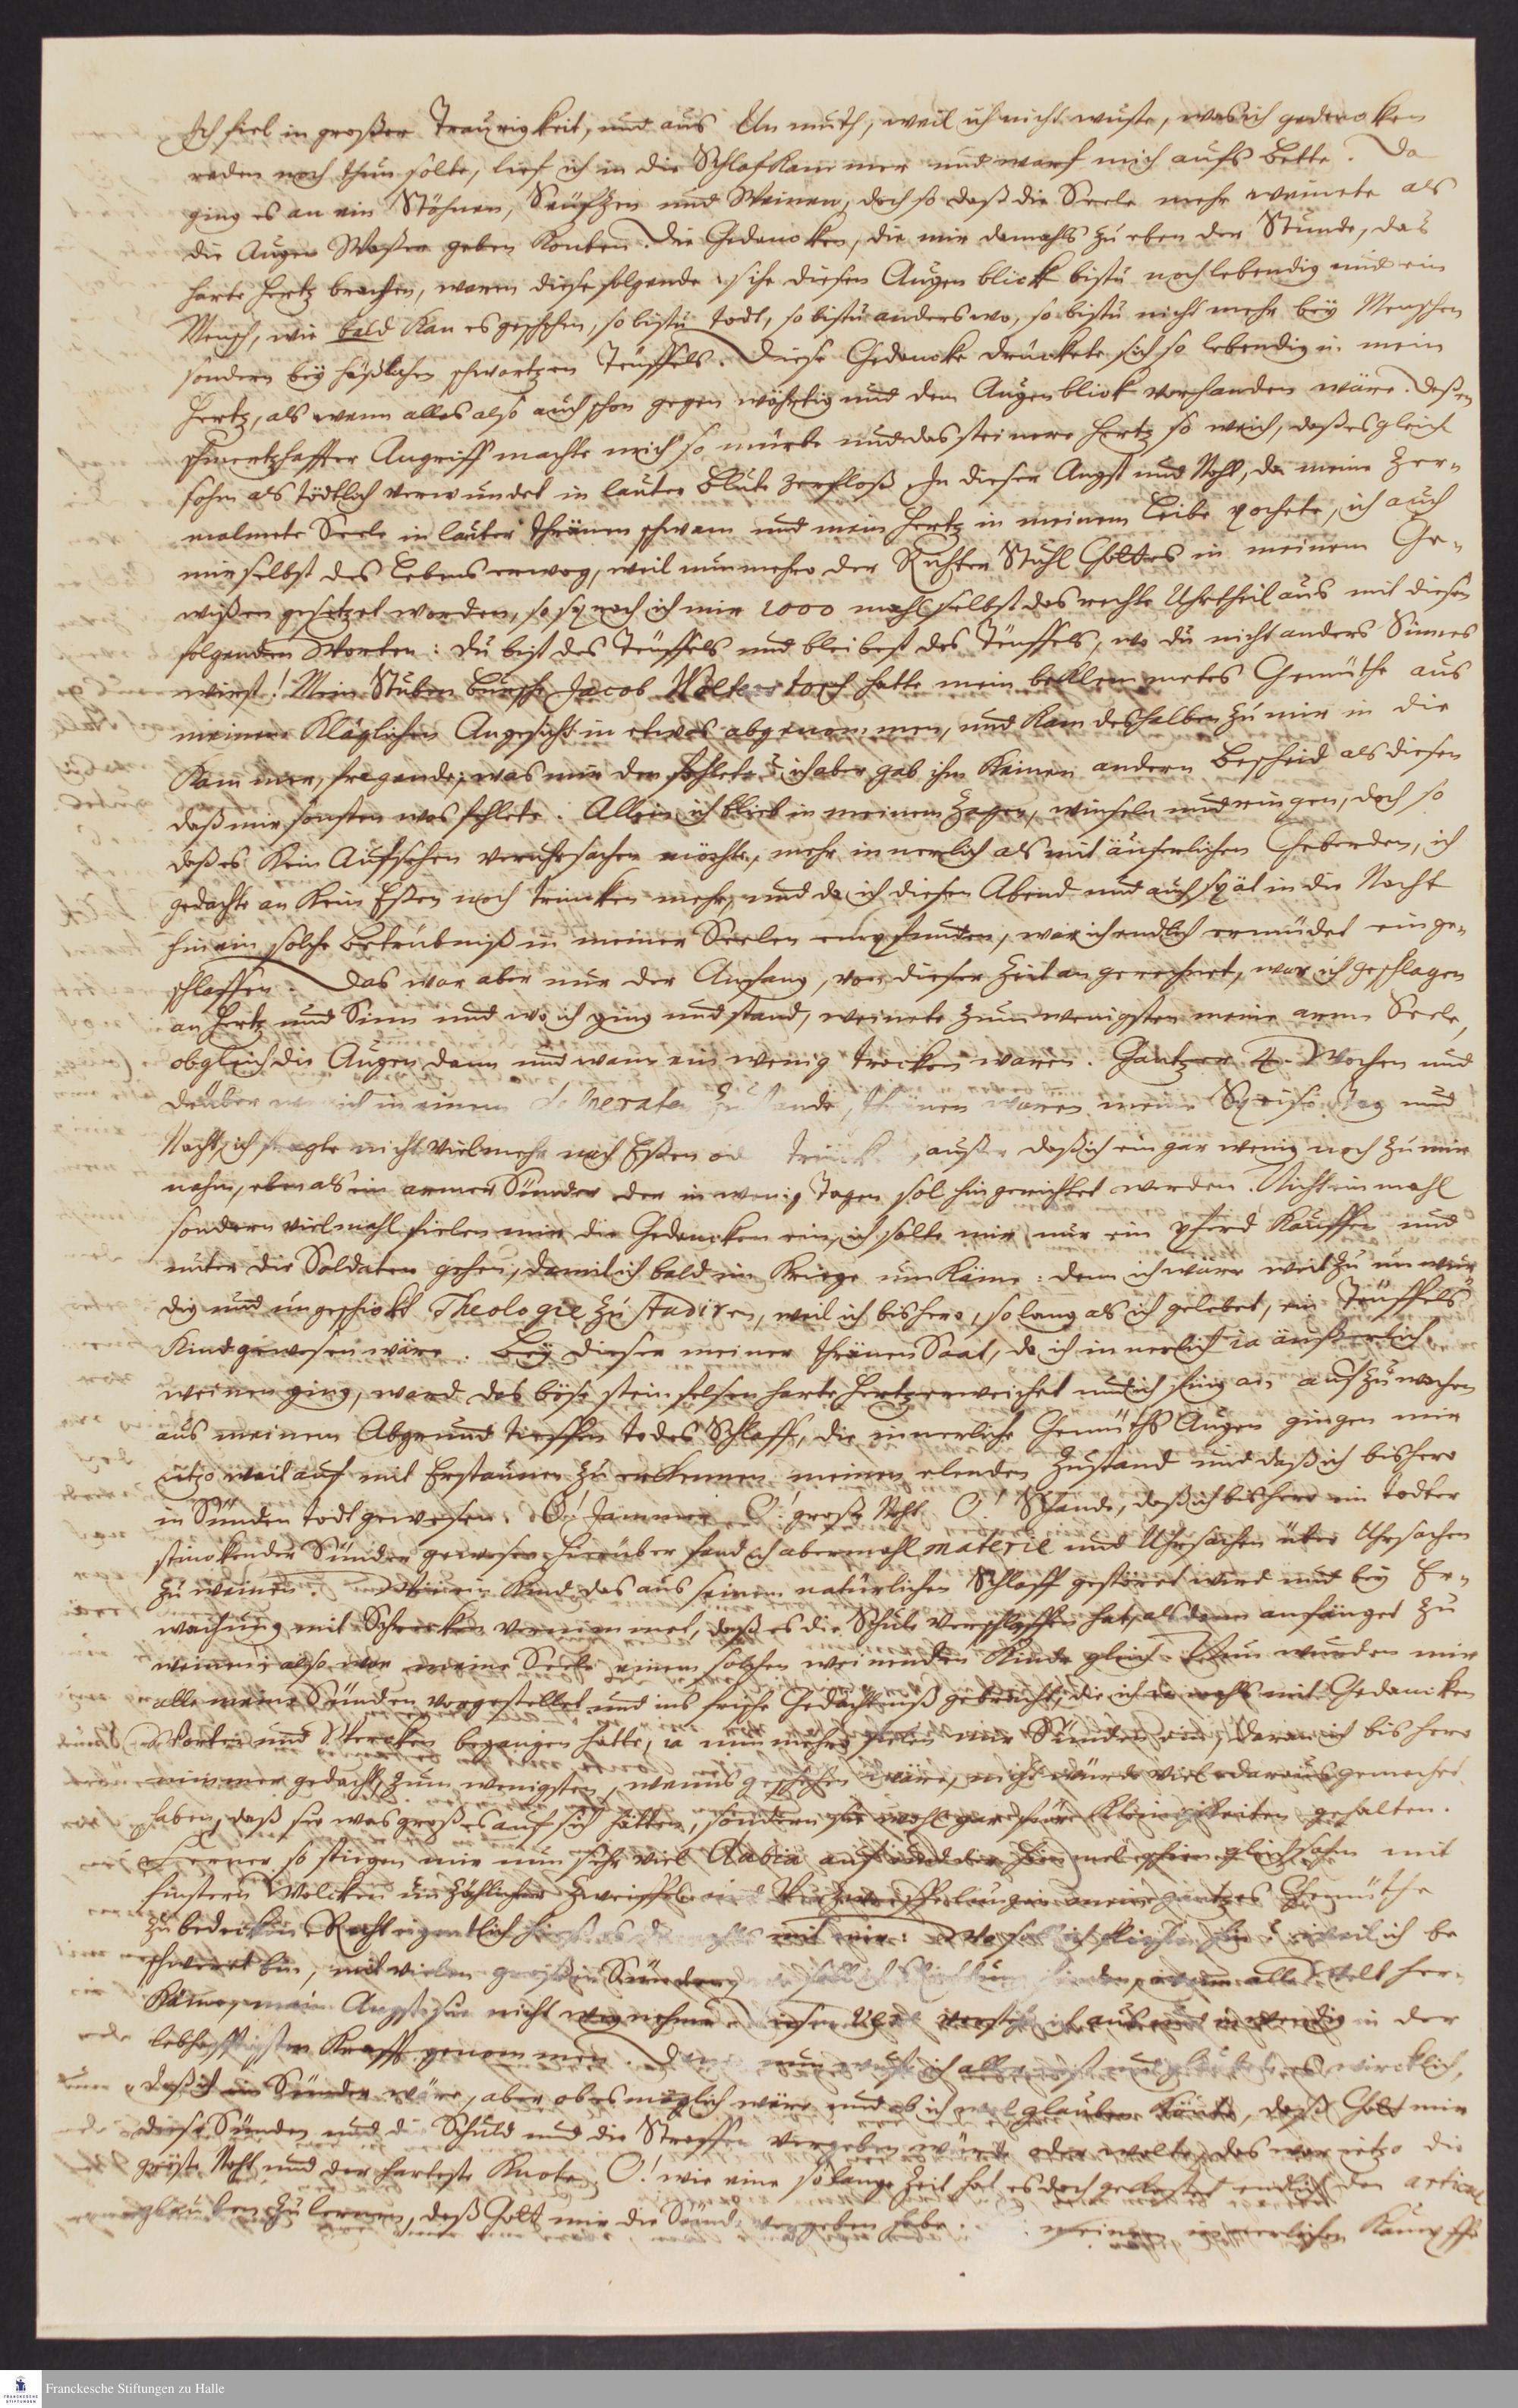 Ich fiel in großer Traurigkeit, und aus Unmuth, weil ich nicht wuste, was ich gedencken
reden noch thun solte, lief ich in die Schlafkammer und warf mich aufs Bette. Da
ging es an ein Stöhnen, Seufzen und Weinen, doch so daß die Seele mehr weinete als
die Augen Waßer geben konten. Die Gedancken, die mir damahls zu eben der Stunde, das
harte Hertz brachen, waren diese folgende: sihe diesen Augenblick bistu noch lebendig und ein
Mensch, wie bald kan es geschehen, so bistu todt, so bistu anderswo, so bistu nicht mehr bey Menschen
sondern bey häßlichen schwartzen Teuffels. Diese Gedancke drückete sich so lebendig in mein
Hertz, als wenn alles also auch schon gegenwärtig und den Augenblick vorhanden wäre. Deßen
schmertzhaffter Angriff machte mich so mürbe und das steinere Hertz so weich, daß es gleich
sahm als tödtlich verwundet in lauter Blute zerfloß. In dieser Angst und Noht, da meine zer-
malmete Seele in lauter thränen schwam und mein Hertz in meinem Leibe pochete, ich auch
mir selbst des Lebens erwog, weil nunmehro der Richter Stuhl Gottes in meinem Ge-
wißen gesetzet worden, so sprach ich mir 1000 mahl selbst das rechte Uhrtheil aus mit diesen
folgenden Worten: du bist des Teuffels und bleibest des Teuffels, wo du nicht anders Sinnes
wirst! Mein Stuben Bursche Jacob Woltersdorf hatte mein beklemmetes Gemüthe aus
meinem kläglichen Angesicht in etwas abgenommen, und kam deshalben zu mir in die
Kammer, fragende, was mir den fehlete? ich aber gab ihm keinen andern Bescheid als diesen
daß mir sonsten was fehlete. Allein ich blieb in meinem Zagen, winseln und ringen, doch so
daß es kein Aufsehen veruhrsachen möchte, mehr innerlich als mit äuserlichen Geberden, ich
gedachte an kein Eßen noch trincken mehr, und da ich diesen Abend und auch spät in die Nacht
hinein solche Betrübniß in meiner Seelen empfunden, war ich endlich ermüdet einge-
schlaffen. Das war aber nur der Anfang, von dieser Zeit an gerechnet, war ich geschlagen
an Hertz und Sinn und wo ich ging und stand, weinete zum wenigsten meine arme Seele,
obgleich die Augen dann und wann ein wenig trocken waren. Gantzer 4 Wochen und
drüber war ich in einem desperaten Zustande, thränen waren meine Speise tag und
Nacht, ich fragte nicht viel mehr nach Eßen od trinck, außer daß ich ein gar wenig noch zu mir
nahm, eben als ein armer Sünder der in wenig Tagen sol hingerichtet werden. Nicht einmahl
sondern vielmahl fielen mir die Gedancken ein, ich solte mir nur ein pferd kauffen und
unter die Soldaten gehen, damit ich bald im Kriege umkäme: denn ich wäre weit zu unwür
dig und ungeschickt Theologie zu studiren, weil ich bishero, so lang als ich gelebet, ein Teuffels
Kind gewesen wäre. Bey dieser meiner thränen Saat, da ich innerlich ia äußerlich
weinen ging, ward das böse steinfelsen harte Hertz erweichet und ich fing an aufzuwachen
aus meinem Abgrund tieffen todes Schlaff, die innerliche Gemüths Augen gingen mir
ietzo weit auf mit Erstaunen zu erkennen meinen elenden Zustand und daß ich bishero
in Sünden todt gewesen. O! Jammer O! große Noht O! Schande, daß ich bishero ein todter
stinckender Sünder gewesen. Hierüber fand ich abermahl materie und Uhrsachen über Uhrsachen
zu weinen. Wie ein Kind das aus seinem natürlichen Schlaff gestöret wird und bey Er-
wachung mit Schrecken vernimmet, daß es die Schule verschlaffen hat, alsdenn anfänget zu
weinen; also war meine Seele einem solchen weinenden Kinde gleich. Nun wurden mir
alle meine Sünden vorgestellet und ins frische Gedächtnuß gebracht, die ich mit Gedancken
Worten und Wercken begangen hatte, ia nunmehro fielen mir Sünden ein, daran ich bishero
nimmer gedacht, zum wenigsten, wenns geschehen wäre, nicht würde viel daraus gemachet
haben, daß sie was großes auf sich hätten, sondern sie wohl gar für Kleinigkeiten gehalten.
Ferner so stiegen mir nun sehr viel dubia auf und der Himmel schien gleichsahm mit
finstern Wolcken unzählicher Zweiffel und mein gantzes Gemüthe
zu bedecken. Recht eigentlich hieß es damahls mit mir: Wo sol ich fliehen hin? weil ich be
schweret bin, mit vielen großen Sünden, wo sol ich Rettung finden, wenn alle Welt her
käme, mein Angst sie nicht wegnehme. diesen Vers in der
lebhafftigsten Krafft genommen. nun wuste ich und glaubete es wircklich,
daß ich ein Sünder wäre, aber ob es möglich wäre und ob ich wol glauben könte, daß Gott mir
diese Sünden und die Schuld und die Straffen vergeben würde oder wolte, das war ietzo die
gröste Noht und der harteste Knote. O! wie eine so lange Zeit hat es doch gekostet endlich den articul
glauben zu lernen, daß Gott mir die Sünde vergeben habe. meinem innerlichen Kampffe
Franckesche Stiftungen zu Halle